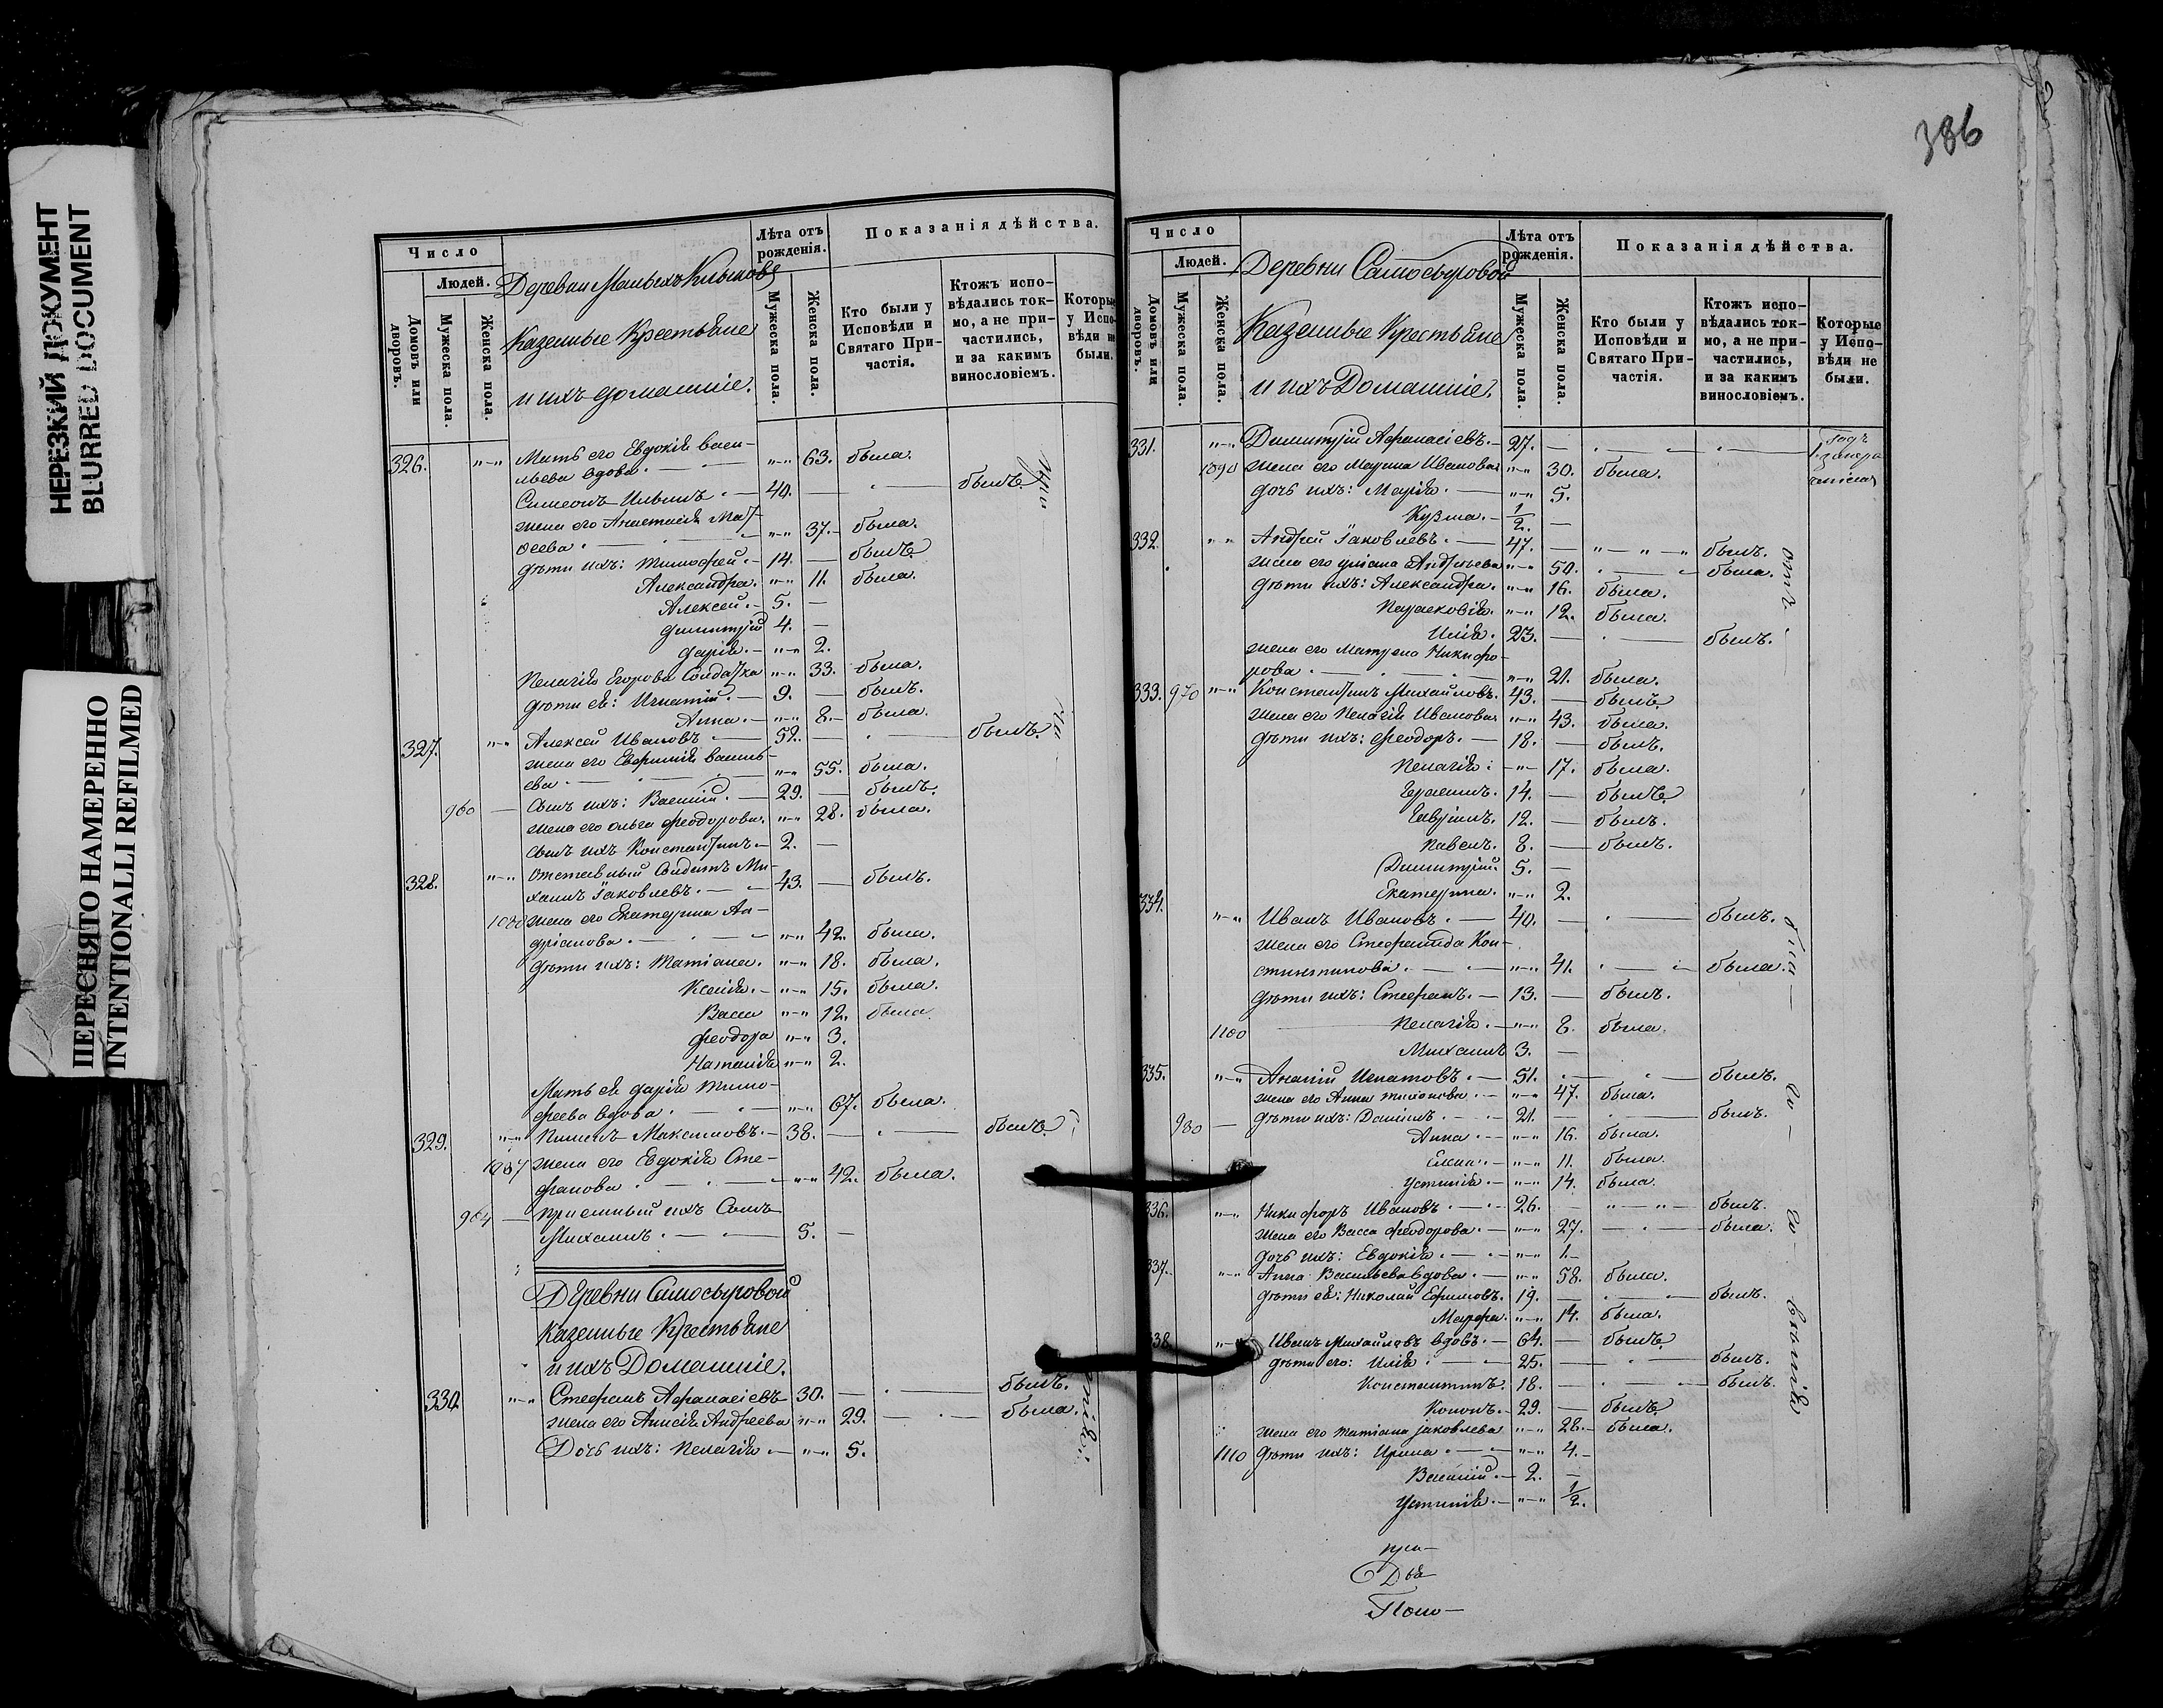 НЕРЕЗКИЙ ДОКУМЕНТ
BLURRED DOCUMENT
ПЕРЕСНЯТО НАМЕРЕННО
INTENTIONALLI REFILMED
Число
Людей.
Домовъ или дворовъ.
Мужеска пола.
Женска пола.
Деревни Малыхъ
Казенные Крестьяне
и ихъ домашніе.
Лѣта отъ рожденія.
Мужеска пола.
Женска пола.
Показанія дѣйства.
Кто были у Исповѣди и Святаго Причастія.
Ктожъ исповѣдались токмо, а не причастились, и за какимъ винословіемъ.
Которые у Исповѣди не были.
326. "—" Мать его Евдокія Васи-
льева вдова. "—" 63. была.
Симеонъ Ильинъ. 40. — былъ.
жена его Анастасія Мат-
ѳеева. "—" 37. была.
дѣти ихъ: Тимофей. 14. — былъ.
Александра. "—" 11. была.
Алексей. 5. —
Димитрій 4. —
Дарія. "—" 2.
Пелагія Егорова Солдатка "—" 33. была.
дѣти ея: Игнатій. 9. — былъ.
Анна. "—" 8. была.
327. "—" Алексей Ивановъ. 52. — былъ.
жена его Евфимія Василь-
ева "—" 55. была.
960 — Сынъ ихъ: Василій. 29. — былъ.
жена его Ольга Феодорова. "—" 28. была.
сынъ ихъ Константинъ. 2. —
328. "—" Отставный Солдатъ Ми-
хаилъ Іаковлевъ. 43. — былъ.
1080 жена его Екатерина Ан-
дріанова. "—" 42. была.
дѣти ихъ: Татіана. "—" 18. была.
Ксенія. "—" 15. была.
Васса "—" 12. была.
Феодора "—" 3.
Наталія "—" 2.
Мать ея Дарія Тимо-
феева вдова. "—" 67. была.
329. "—" Пименъ Максимовъ. 38. — былъ.
1087 жена его Евдокія Сте-
фанова "—" 42. была.
964 — пріемный ихъ Сынъ
Михаилъ. 5. —
Деревни Самосыровой
Казенные Крестьяне
и ихъ Домашніе.
330. "—" Стефанъ Афанасіевъ 30. — былъ.
жена его Анисія Андреева "—" 29. — была.
Дочь ихъ: Пелагія "—" 5.
386
Число
Людей.
Домовъ или дворовъ.
Мужеска пола.
Женска пола.
Деревни Самосыровой
Казенные Крестьяне
и ихъ Домашніе.
Лѣта отъ рожденія.
Мужеска пола.
Женска пола.
Показанія дѣйства.
Кто были у Исповѣди и Святаго Причастія.
Ктожъ исповѣдались токмо, а не причастились, и за какимъ винословіемъ.
Которые у Исповѣди не были.
331. "—" Димитрій Афанасіевъ. 27. —
1090 жена его Марина Иванова "—" 30. была.
дочь ихъ: Марія. "—" 5.
Кузма. 1/2. —
332. "—" Андрей Іаковлевъ. 47. — былъ.
жена его Уліана Андреева "—" 50. была.
дѣти ихъ: Александра. "—" 16. была.
Парасковія. "—" 12. была.
Илія. 23. — былъ.
жена его Матрена Никифо-
рова "—" 21. была.
333. 970 "—" Константинъ Михайловъ. 43. — былъ.
жена его Пелагія Иванова "—" 43. была.
дѣти ихъ: Феодоръ. 18. — былъ.
Пелагія. "—" 17. была.
Герасимъ. 14. — былъ.
12. — былъ.
Павелъ. 8. — былъ.
Димитрій. 5. —
Екатерина. "—" 2.
334. "—" Иванъ Ивановъ. 40. — былъ.
жена его Стефанида Кон-
стантинова. "—" 41. была.
дѣти ихъ: Стефанъ. 13. — былъ.
1100 Пелагія. "—" 8. была.
Михаилъ 3. —
335. "—" Ананій Игнатовъ. 51. былъ.
жена его Анна Тихонова. "—" 47. была.
980 — дѣти ихъ: Даніилъ. 21. былъ.
Анна. "—" 16. была.
Елена. "—" 11. была.
Устинія. "—" 14. была.
336. "—" Никифоръ Ивановъ. 26. — былъ.
жена его Васса Феодорова. "—" 27. — была.
дочь ихъ: Евдокія. "—" 1.
337. "—" Анна Васильева вдова. "—" 58. была.
дѣти ея: Николай Ефимовъ. 19. — былъ.
Марфа. "—" 14. была.
338. "—" Иванъ Михайловъ вдовъ. 64. — былъ.
дѣти его: Илія 25. — былъ.
Константинъ. 18. — былъ.
Кононъ. 29. — былъ.
жена его Татіана Іаковлева "—" 28. была.
1110 дѣти ихъ: Ирина. "—" 4.
Василій. 2. —
Устинія. "—" 1/2.
при-
Два